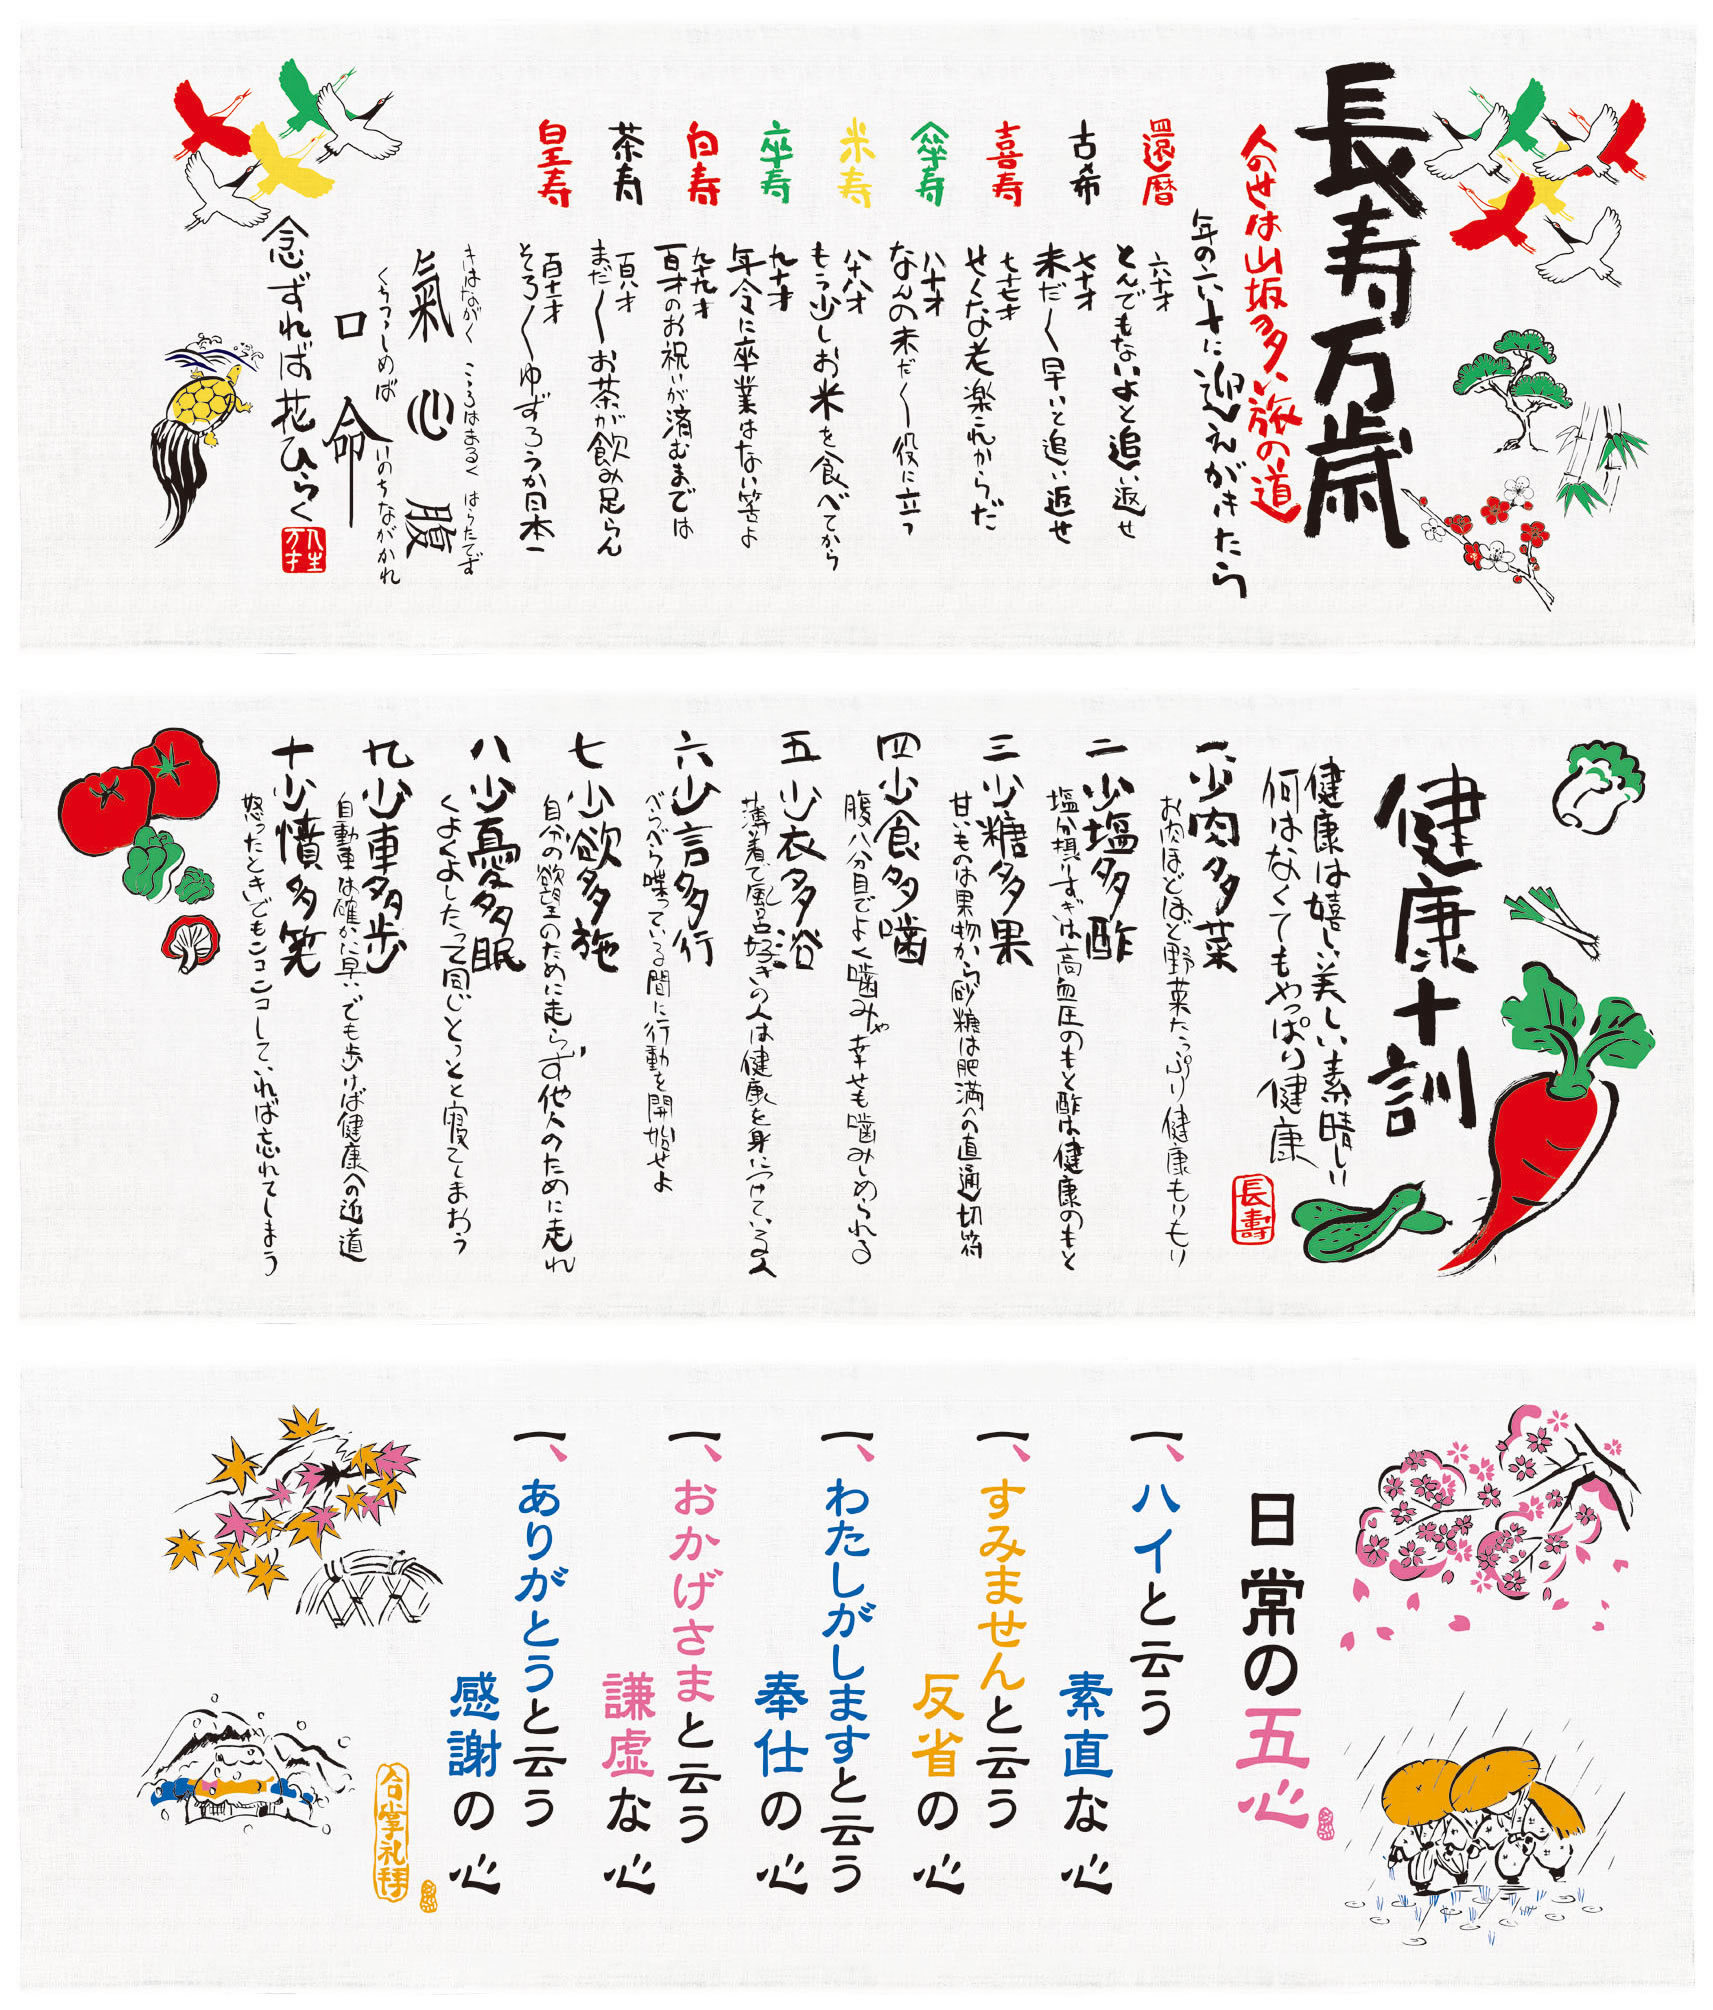 長寿万歳
人の世は山坂多い旅の道
年の六十に迎えがきたら
還暦
六十才
とんでもないよと追い返せ
古希
七十才
未だ〱早いと追い返せ
喜寿
七十七才
せくな老楽これからだ
傘寿
八十才
なんの未だ〱役に立つ
米寿
八十八才
もう少しお米を食べてから
卒寿
九十才
年令に卒業はない筈よ
白寿
九十九才
百才のお祝いが済むまでは
茶寿
百八才
まだ〱お茶が飲み足らん
皇寿
百十一才
そろ〱ゆずろうか日本一
きはながく こころはまるく はらたてず
氣 心 腹
くちつゝしめば いのちながかれ
口 命
念ずれば花ひらく
人生
万才
健康十訓
健康は嬉しい美しい素晴しい
何はなくてもやっぱり健康
長壽
一少肉多菜
お肉ほどほど野菜たっぷり健康もりもり
二少塩多酢
塩分摂りすぎは高血圧のもと酢は健康のもと
三少糖多果
甘いものは果物から砂糖は肥満への直通切符
四少食多噛
腹八分目でよく噛みや幸せも噛みしめられる
五少衣多浴
薄着で風呂好きの人は健康を身につけている人
六少言多行
べらべら喋っている間に行動を開始せよ
七少欲多施
自分の欲望のために走らず他人のために走れ
八少憂多眠
くよくよしたって同じとっとと寝てしまおう
九少車多歩
自動車は確かに早いでも歩けば健康への近道
十少憤多笑
怒ったときでもニコニコしていれば忘れてしまう
日常の五心
一、ハイと云う
素直な心
一、すみませんと云う
反省の心
一、わたしがしますと云う
奉仕の心
一、おかげさまと云う
謙虚な心
一、ありがとうと云う
感謝の心
合掌礼拝